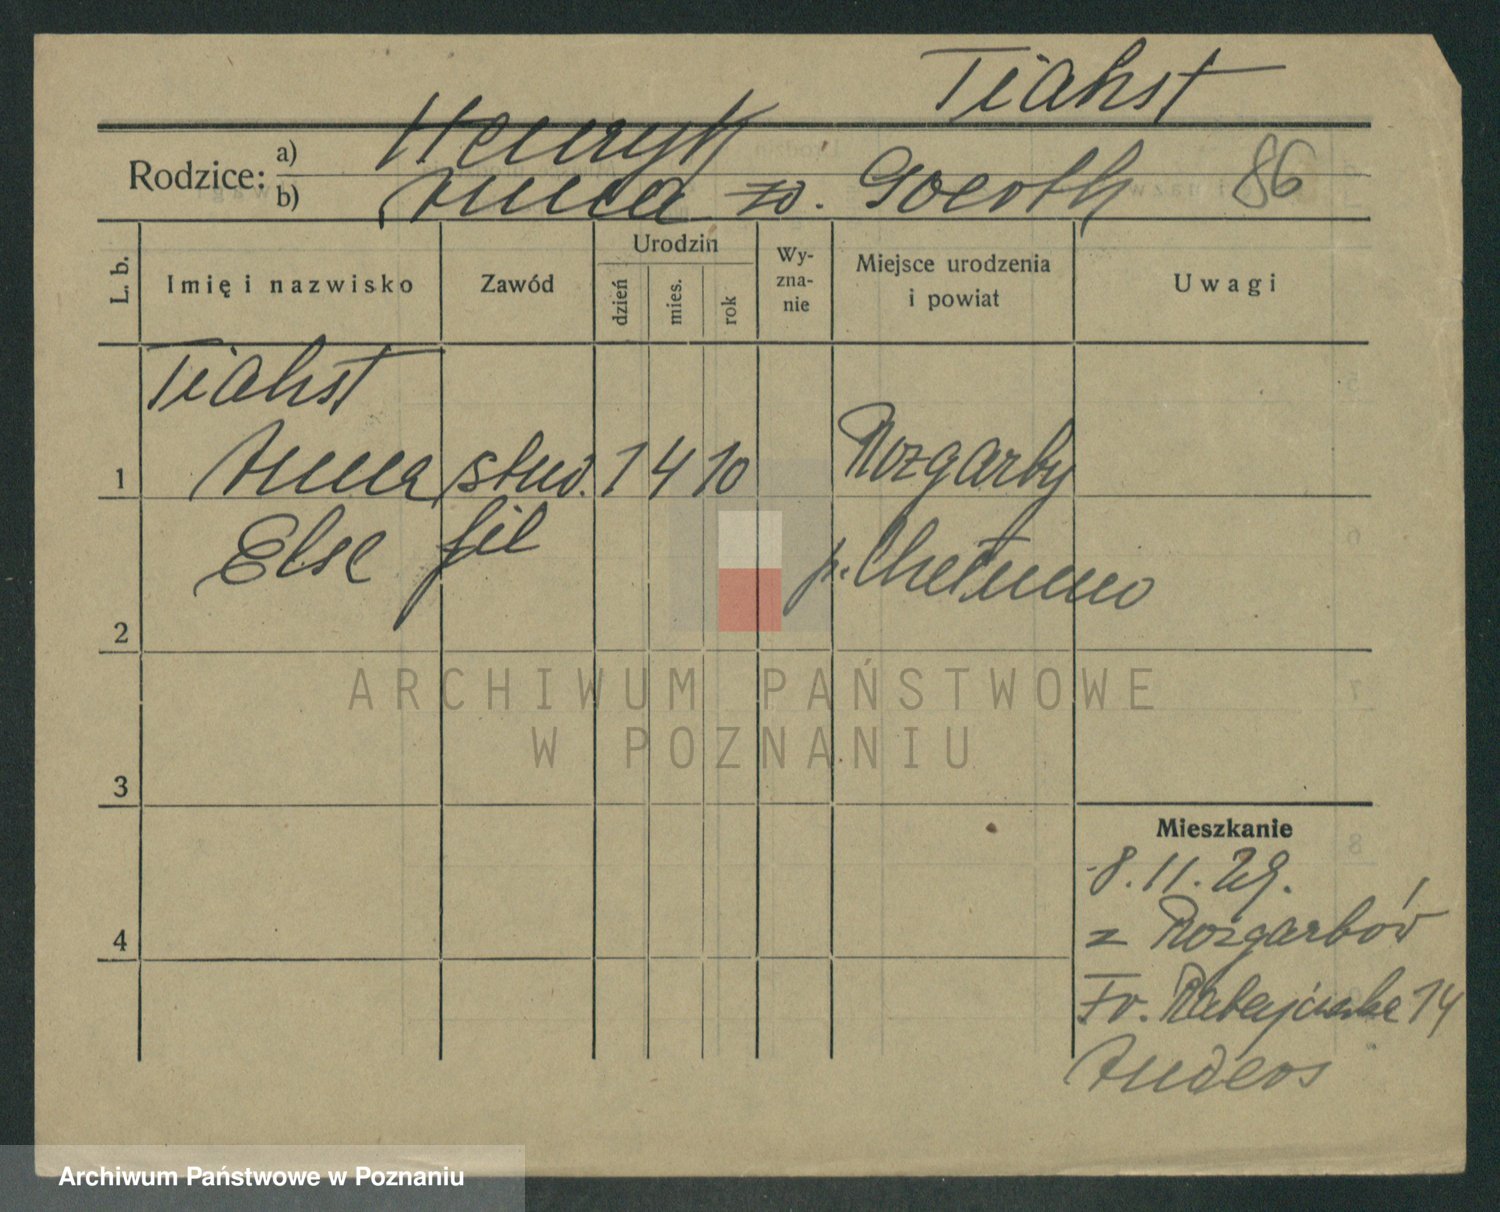 Tiahst
Rodzice: a) Henryk
b) Anna zd. Goerth 86
L. b. Imię i nazwisko Zawód Urodzin dzień mies. rok Wy-zna-nie Miejsce urodzenia i powiat Uwagi
Tiahst
1 Anna stud. 1 4 10 Rozgarty
Else fil p. Chełmno
2
ARCHIWUM PAŃSTWOWE
W POZNANIU
3
Mieszkanie
8.11.29.
4 z Rozgartów
14
Anders
Archiwum Państwowe w Poznaniu